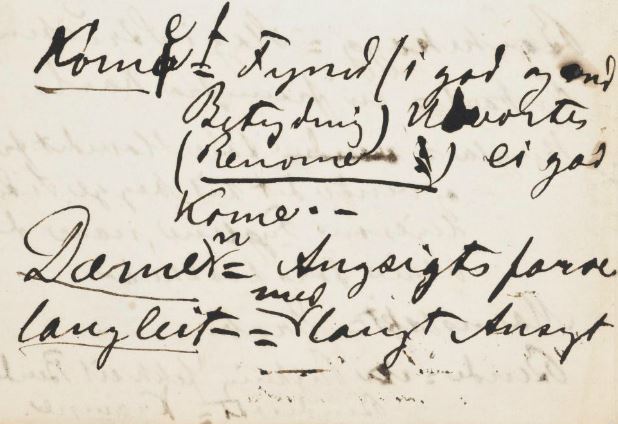 Kome f = Fynd (i god og ond
Betydning) Udvortes
(Renome) ei god
Kome. -
Dæmen = Ansigtsfarve
langleit = med langt Ansigt